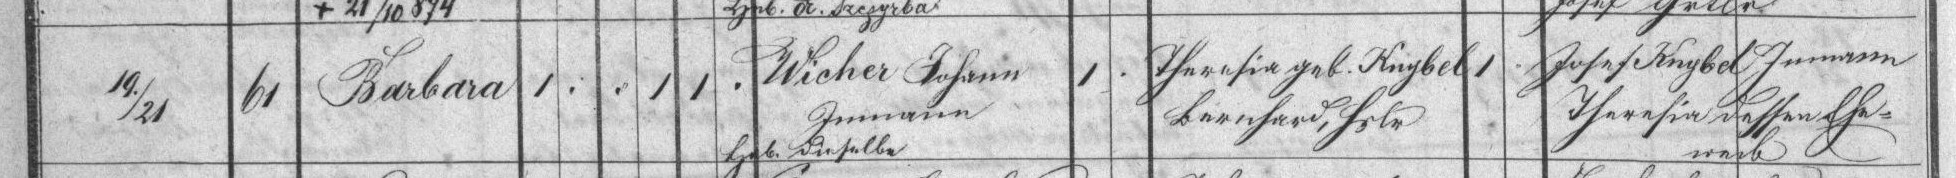 + 21/10 874
Heb. A. Szczyrba
Josef
19./21 61 Barbara 1 . . 1 1 . Wicher Johann 1 . Theresia geb. Knybel 1 . Josef Knybel Inmann
Inmann Bernhard, Hslr Theresia dessen Ehe=
Heb. dieselbe weib